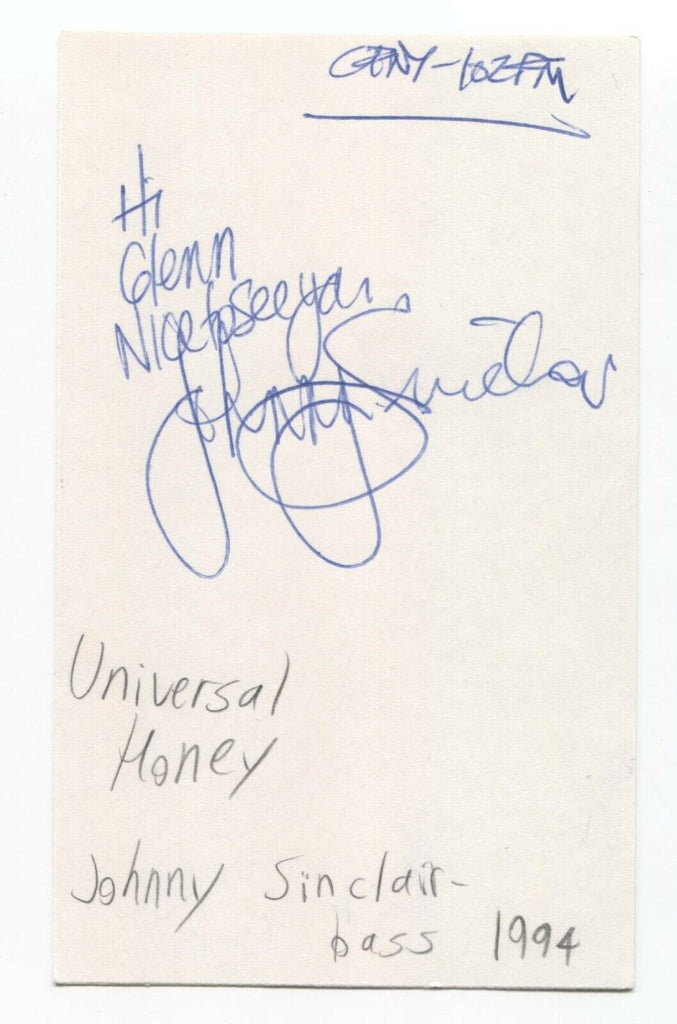 CFNY-102FM
Hi
Glenn
Nice to see you
Johnny Sinclair
Universal
Honey
Johnny Sinclair-
bass 1994